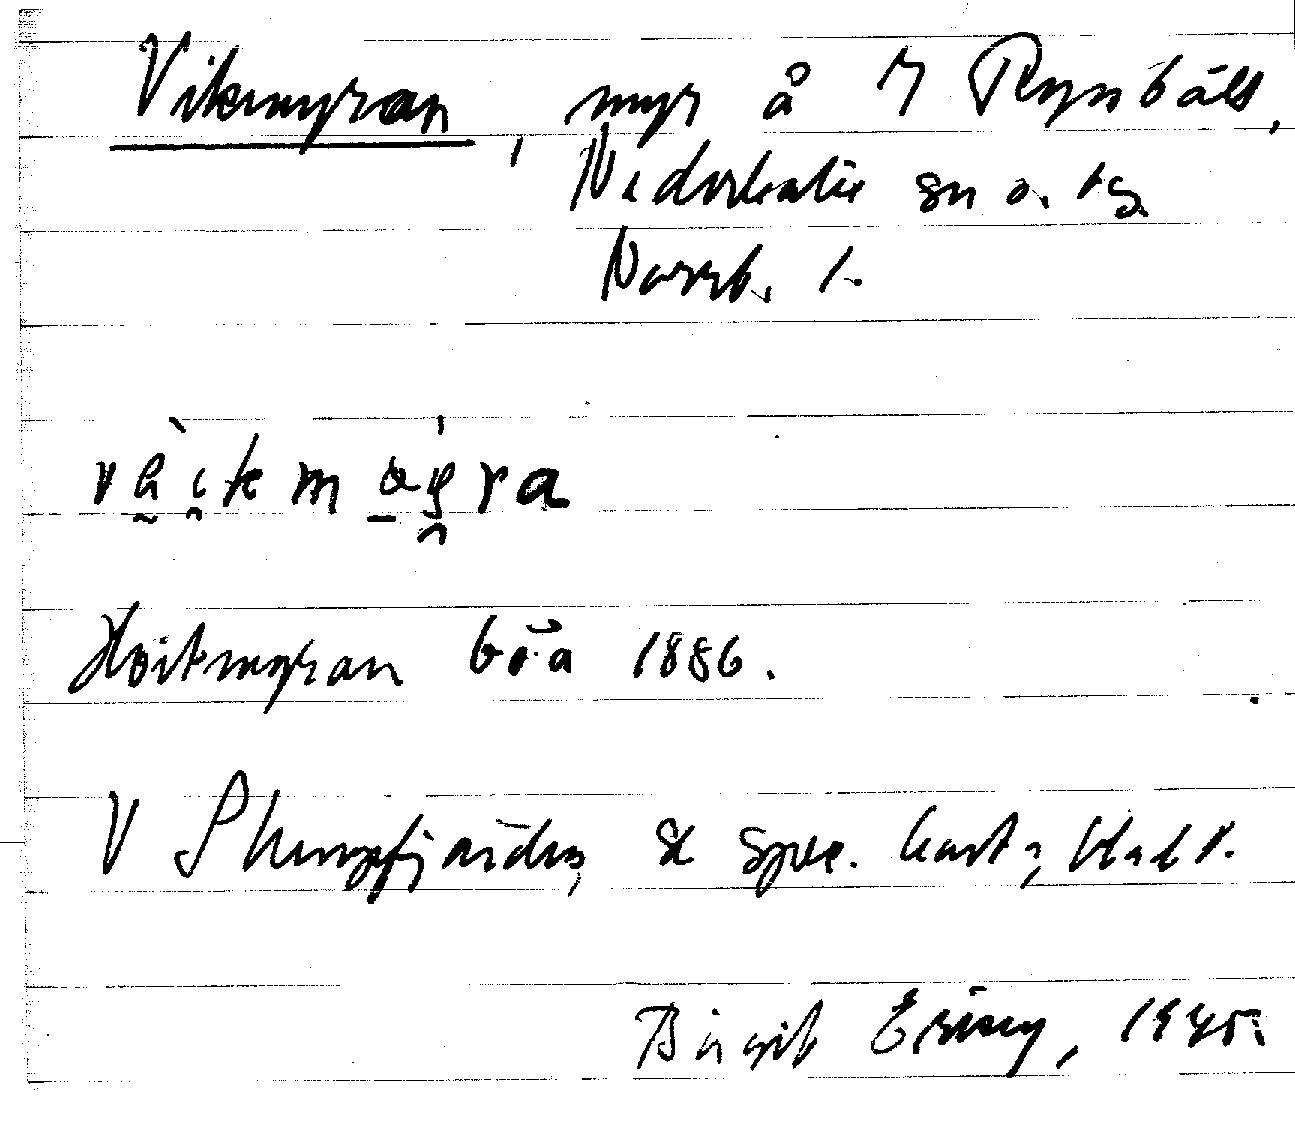 Vikmyran, myr å 7 Rynbäck,
Nederkalix sn o. tg
Norrb. l.
Hvitmyran böa 1886.
V Skumpfjärden, se spec. karta, blad 1.
Birgit Ering, 1945.